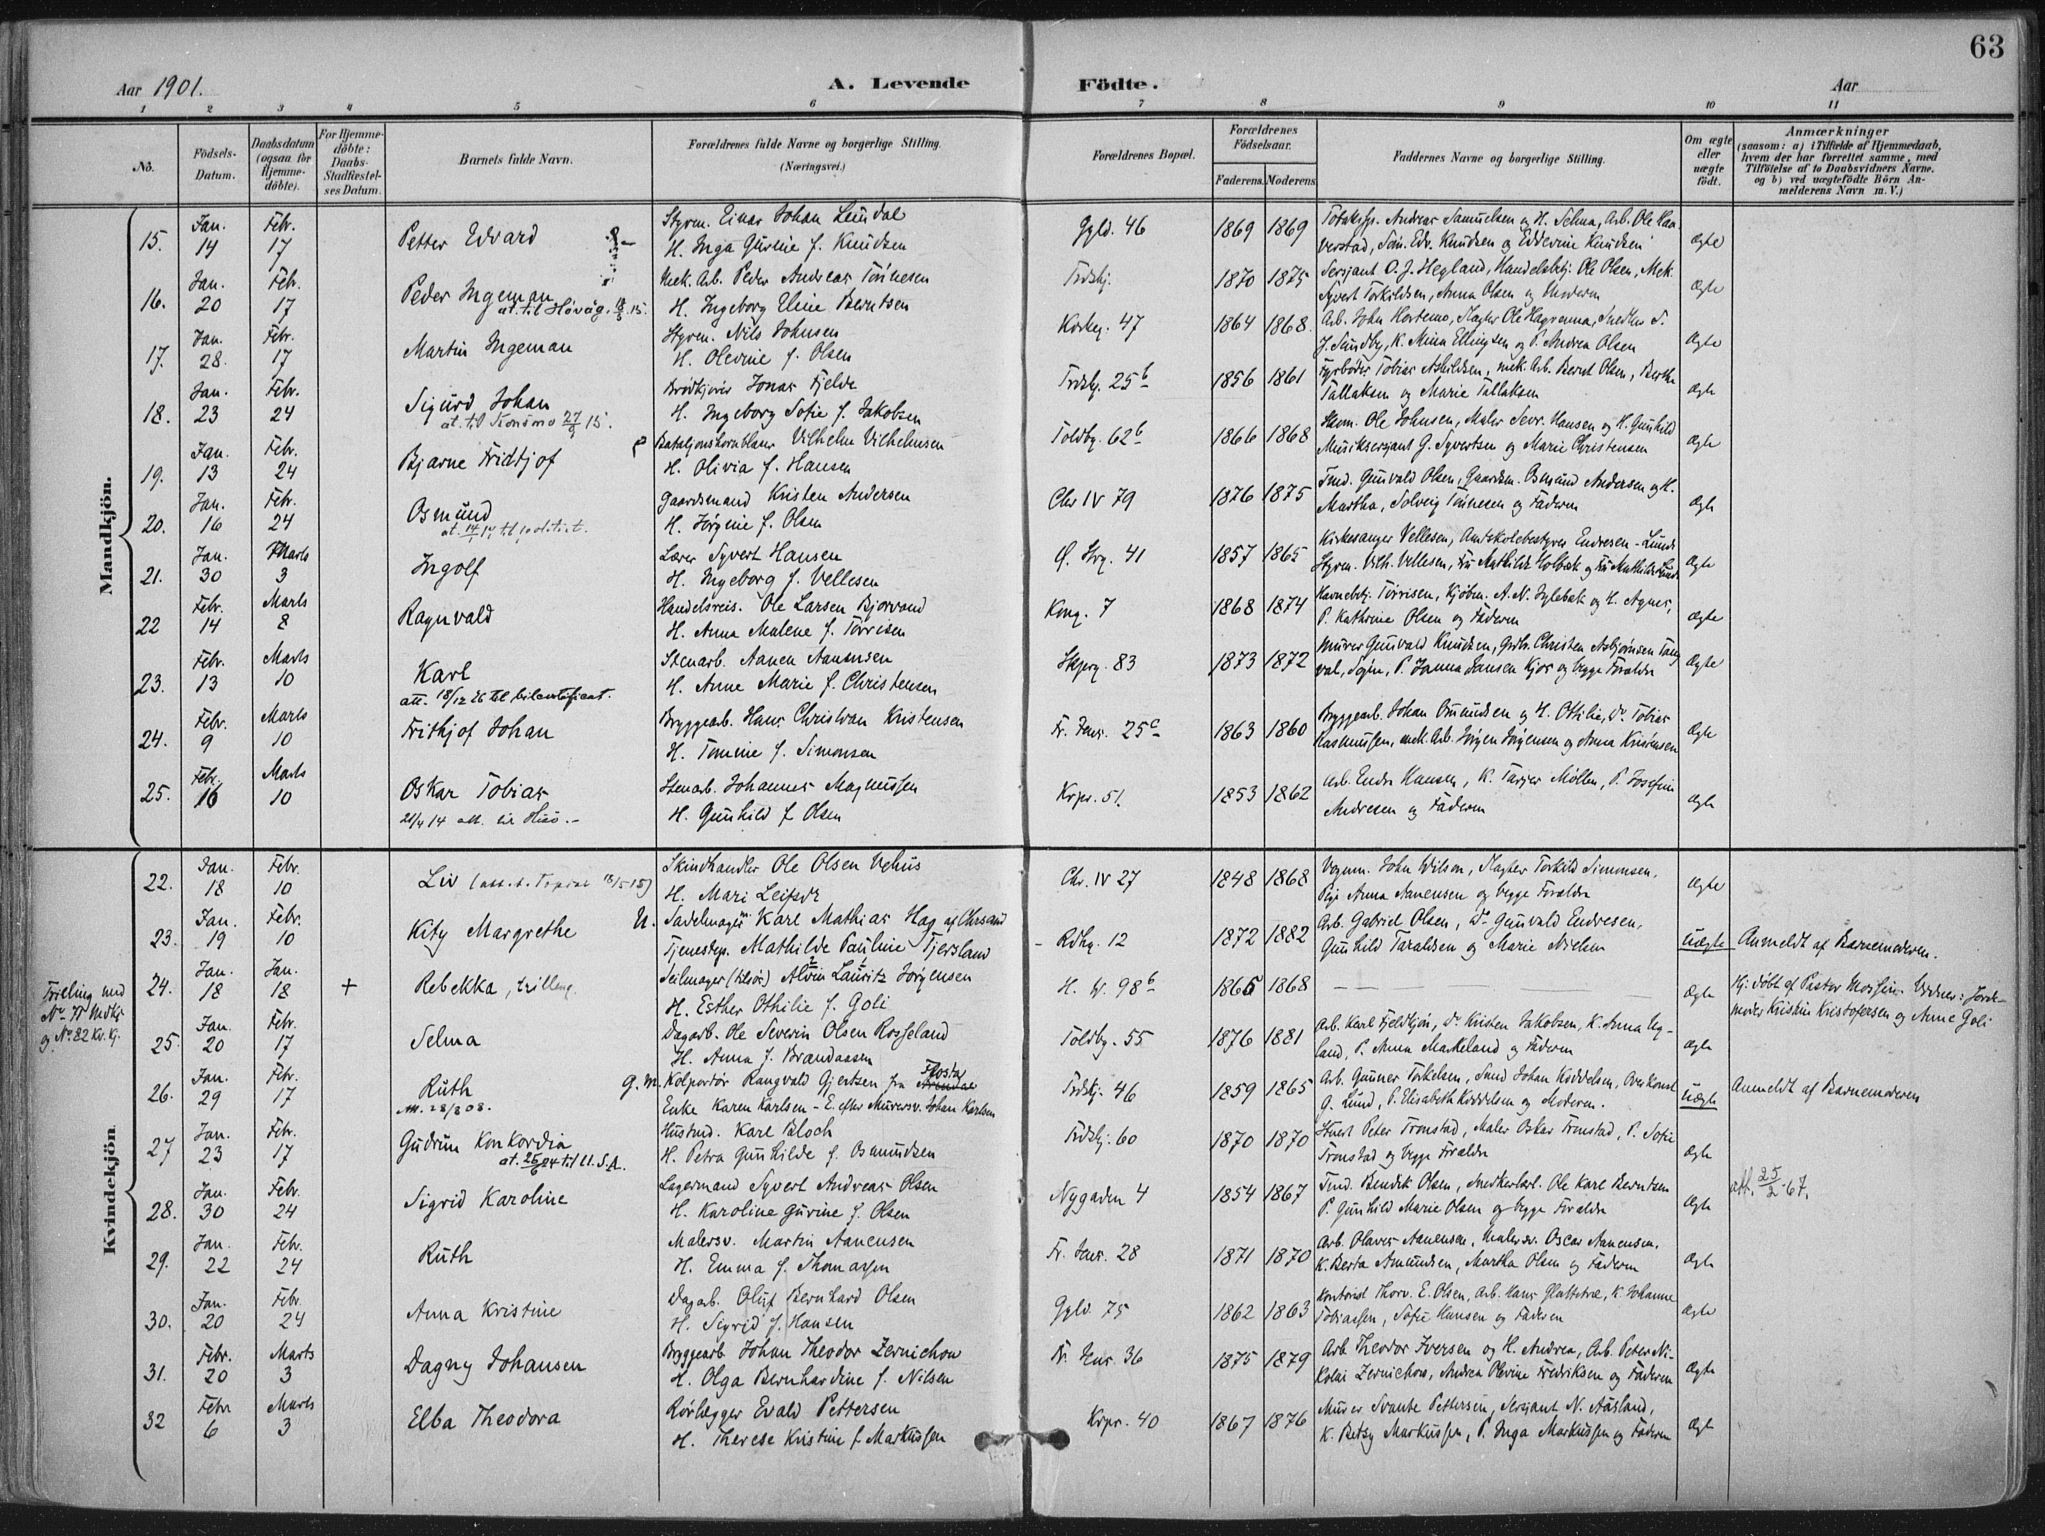 63
Aar 1901.
A. Levende Födte.
Aar
1 2 3 4 5 6 7 8 9 10 11
No.
Födsels-Datum.
Daabsdatum (ogsaa for Hjemmedöbte).
For Hjemmedöbte: Daabs-Stadfæstelses Datum.
Barnets fulde Navn.
Forældrenes fulde Navne og borgerlige Stilling. (Næringsvei.)
Forældrenes Bopæl.
Forældrenes Födselsaar.
Faderens. Moderens.
Faddernes Navne og borgerlige Stilling.
Om ægte eller uægte födt.
Anmærkninger (saasom: a) i Tilfælde af Hjemmedaab, hvem der har forrettet samme, med Tilföielse af to Daabsvidners Navne. og b) ved uægtefödte Börn Anmelderens Navn m. V.)
Mandkjön.
15. Jan. 14 Febr. 17 Petter Edvard
Styrm. Einar Johan Lundal
H. Inga Gurine f. Knudsen
Gyld. 46 1869 1869
Andreas Samuelsen og H. Selma, Arb. Ole Haa-
verstad, Edv. Knudsen og Edvardine Knudsen
Ægte
16. Jan. 20 Feb. 17 Peder Ingeman
at. til Høvåg. 18/3 15.
Mek. Arb. Peder Andreas Tønnesen
H. Ingeborg Eline Berntsen
Trdskj. 1870 1875
Sersjant O. J. Hegland, Handelsbetj. Ole Olsen, Mek.
Syvert Torkildsen, Anna Olsen og Moderen
Ægte
17. Jan. 28. Febr. 17 Martin Ingeman
Styrm. Nils Johnsen
H. Olevine f. Olsen
Kirkeg. 47 1864 1868.
Arb. John Hortemo, Slagter Ole Hagvenna, Snedker S.
J. Sundby, K. Mina Ellingsen og P. Andrea Olsen
Ægte
18. Jan. 23 Febr. 24 Sigurd Johan
at. til Tronsmo 27/9 15.
Brødkjører Jonas Fjelde
H. Ingeborg Sofie f. Jakobsen
Trdskj. 25b 1856 1861
Fyrbøder Tobias Askildsen, mek. Arb. Bernt Olsen, Berthe
Tallaksen og Marie Tallaksen
Ægte
19. Jan. 13 Febr. 24 Bjarne Fridtjof
Bataljonshornblæser Vilhelm Vilhelmsen
H. Olivia f. Hansen
Toldbg. 62b 1866 1868
Ole Johnsen, Maler Sevr. Hansen og H. Gunhild
Musiksersjant G. Syvertsen og Marie Christensen
Ægte
20. Jan. 16 Febr. 24 Osmund
Gaardsmand Kristen Andersen
H. Jørgine f. Olsen
Chr IV 79 1876 1875
Tmd. Gunvald Olsen, Gaardsm. Osmund Andersen og H.
Martha, Solveig Tønnesen og Faderen
Ægte
21. Jan. 30 Marts 3 Ingolf
Lærer Syvert Hansen
H. Ingeborg f. Vellesen
Ø. Strg. 41 1857 1865
Kirkesanger Vellesen, Amtskolebestyrer Endresen-Lunde
Styrm. Vilh. Vellesen, Fru Mathilde Holbæk og Fru Mathilde Lunde
Ægte
22 Febr. 14 Marts 8 Ragnvald
Handelsreis. Ole Larsen Bjorvand
H. Anna Malene f. Tørrisen
Kong. 7 1868 1874
Havnebetj. Tørrisen, Kjøbm. A. N. Jylebæk og H. Agnes,
P. Kathrine Olsen og Faderen
Ægte
23. Febr. 13 Marts 10 Karl
att. 18/12 26 til bilcertificat.
Stenarb. Aanen Aanensen
H. Anne Marie f. Christensen
Skjerg. 83 1873 1872
Murer Gunvald Knudsen, Grdb. Christen Asbjørnsen Tang-
val, Søgne, P. Janna Jansen Kjos og begge Foræld.
Ægte
24. Febr. 9 Marts 10 Frithjof Johan
Bryggearb. Hans Christian Kristensen
H. Tomine f. Simonsen
Fr. Jens. 25c 1863 1860
Bryggearb. Johan Osmundsen og H. Othilie, do Tobias
Rasmussen, mek. Arb. Jørgen Jørgensen og Anna Kristensen
Ægte
25. Febr. 16 Marts 10 Oskar Tobias
21/4 14 att. til Hisö.
Stenarb. Johannes Magnussen
H. Gunhild f Olsen
Krpr. 51. 1853 1862
Arb. Endre Hansen, K. Tarjer Møllen, P. Josefine
Andresen og Faderen
Ægte
Kvindekjön.
22. Jan. 18 Febr. 10 Liv
Skindhandler Ole Olsen Vehus
H. Mari Leifsdr
Chr. IV 27 1848 1868
Vognm. John Wilson, Slagter Torkild Simonsen,
Pige Anna Aanensen og begge Forældre
Ægte
23. Jan. 19 Febr. 10 Kity Margrethe
U. Sadelmager Karl Mathias Hag af Chrsand
Tjenestep. Mathilde Pauline Fjersland
Rdhg. 12 1872 1882
Arb. Gabriel Olsen, do Gunvald Endresen,
Gunhild Taraldsen og Marie Nielsen
Uægte Anmeldt af Barnemoderen.
Trilling med No 71 Mdkj og No 82 Kv. kj.
24. Jan. 18 Jan. 18 + Rebekka, trilling
Seilmager (tilsøs) Alvin Lauritz Jørgensen
H. Esther Othilie f. Goli
H. W. 98b 1865 1868
Ægte
Hj. døbt af Pastor Vidner: Jorde-
moder Kristine Kristofersen og Anne Goli
25. Jan. 20 Febr. 17 Selma
Dagarb. Ole Severin Olsen Rosseland
H. Anna f. Brandaasen
Toldbg. 55 1876 1881
Arb. Karl Fjeldkjøn, do Kristen Jakobsen, K. Anna Ug-
land, P. Anna Markeland og Faderen
Ægte
26. Jan. 29 Febr. 17 Ruth
Att. 28/8 08.
G. M. Kolportør Rangvald Gjertsen fra Arendal Flosta
Enke Karen Karlsen - E. efter Murersv. Johan Karlsen
Trdskj. 46 1859 1865
Arb. Gunner Torkelsen, Smd Johan Kiddelsen, Overkonst
G. Lund, P. Elisabeth Kiddelsen og Moderen.
Uægte Anmeldt af Barnemoderen
27 Jan. 23 Febr. 17 Gudrun Konkordia
at. 25/6 24 til U. S. A.
Karl Bloch
H. Petra Gunhilde f. Osmundsen
Trdskj. 60 1870 1870
Stuert Peter Tronstad, Maler Oskar Tronstad, P. Sofie
Tronstad og begge Forældre
Ægte
28. Jan. 30 Febr. 24 Sigrid Karoline
Lagermand Syvert Andreas Olsen
H. Karoline Gurine f. Olsen
Nygaden 4 1854 1867
Tmd. Bendik Olsen, Snedkerlærl. Ole Karl Berntsen
P. Gunhild Marie Olsen og begge Forældre
Ægte att. 25/2 67.
29. Jan. 22 Febr. 24 Ruth
Malersv. Martin Aanensen
H. Emma f. Thomassen
Fr. Jens. 28 1871 1870
Arb. Olaves Aanensen, Malersv. Oscar Aanensen,
K. Berta Amundsen, Martha Olsen og Faderen
Ægte
30. Jan. 20 Febr. 24 Anna Kristine
Dagarb. Oluf Bernhard Olsen
H. Sigrid f. Hansen
Gyld 75 1862 1863
Kontorist Thorv. E. Olsen, Arb. Hans Slottetræ, K. Johanne
Tobiassen, Sofie Hansen og Faderen
Ægte
31. Febr. 20 Marts 3 Dagny Johansen
Bryggearb Johan Theodor Zernichow
H. Olga Bernhardine f. Nilsen
Fr. Jens. 36 1875 1879
Arb. Theodor Iversen og H. Andrea, Arb. Peter Ni-
kolai Zernichow, Andrea Olevine Fredriksen og Faderen
Ægte
32 Febr 6 Marts 3 Elba Theodora
Rørlægger Evald Pettersen
H. Therese Kristine f Markussen
Krpr. 40 1867 1876
Murer Svante Pettersen, Sersjant N. Aasland,
K. Betsy Markussen, P. Inga Markussen og Faderen
Ægt